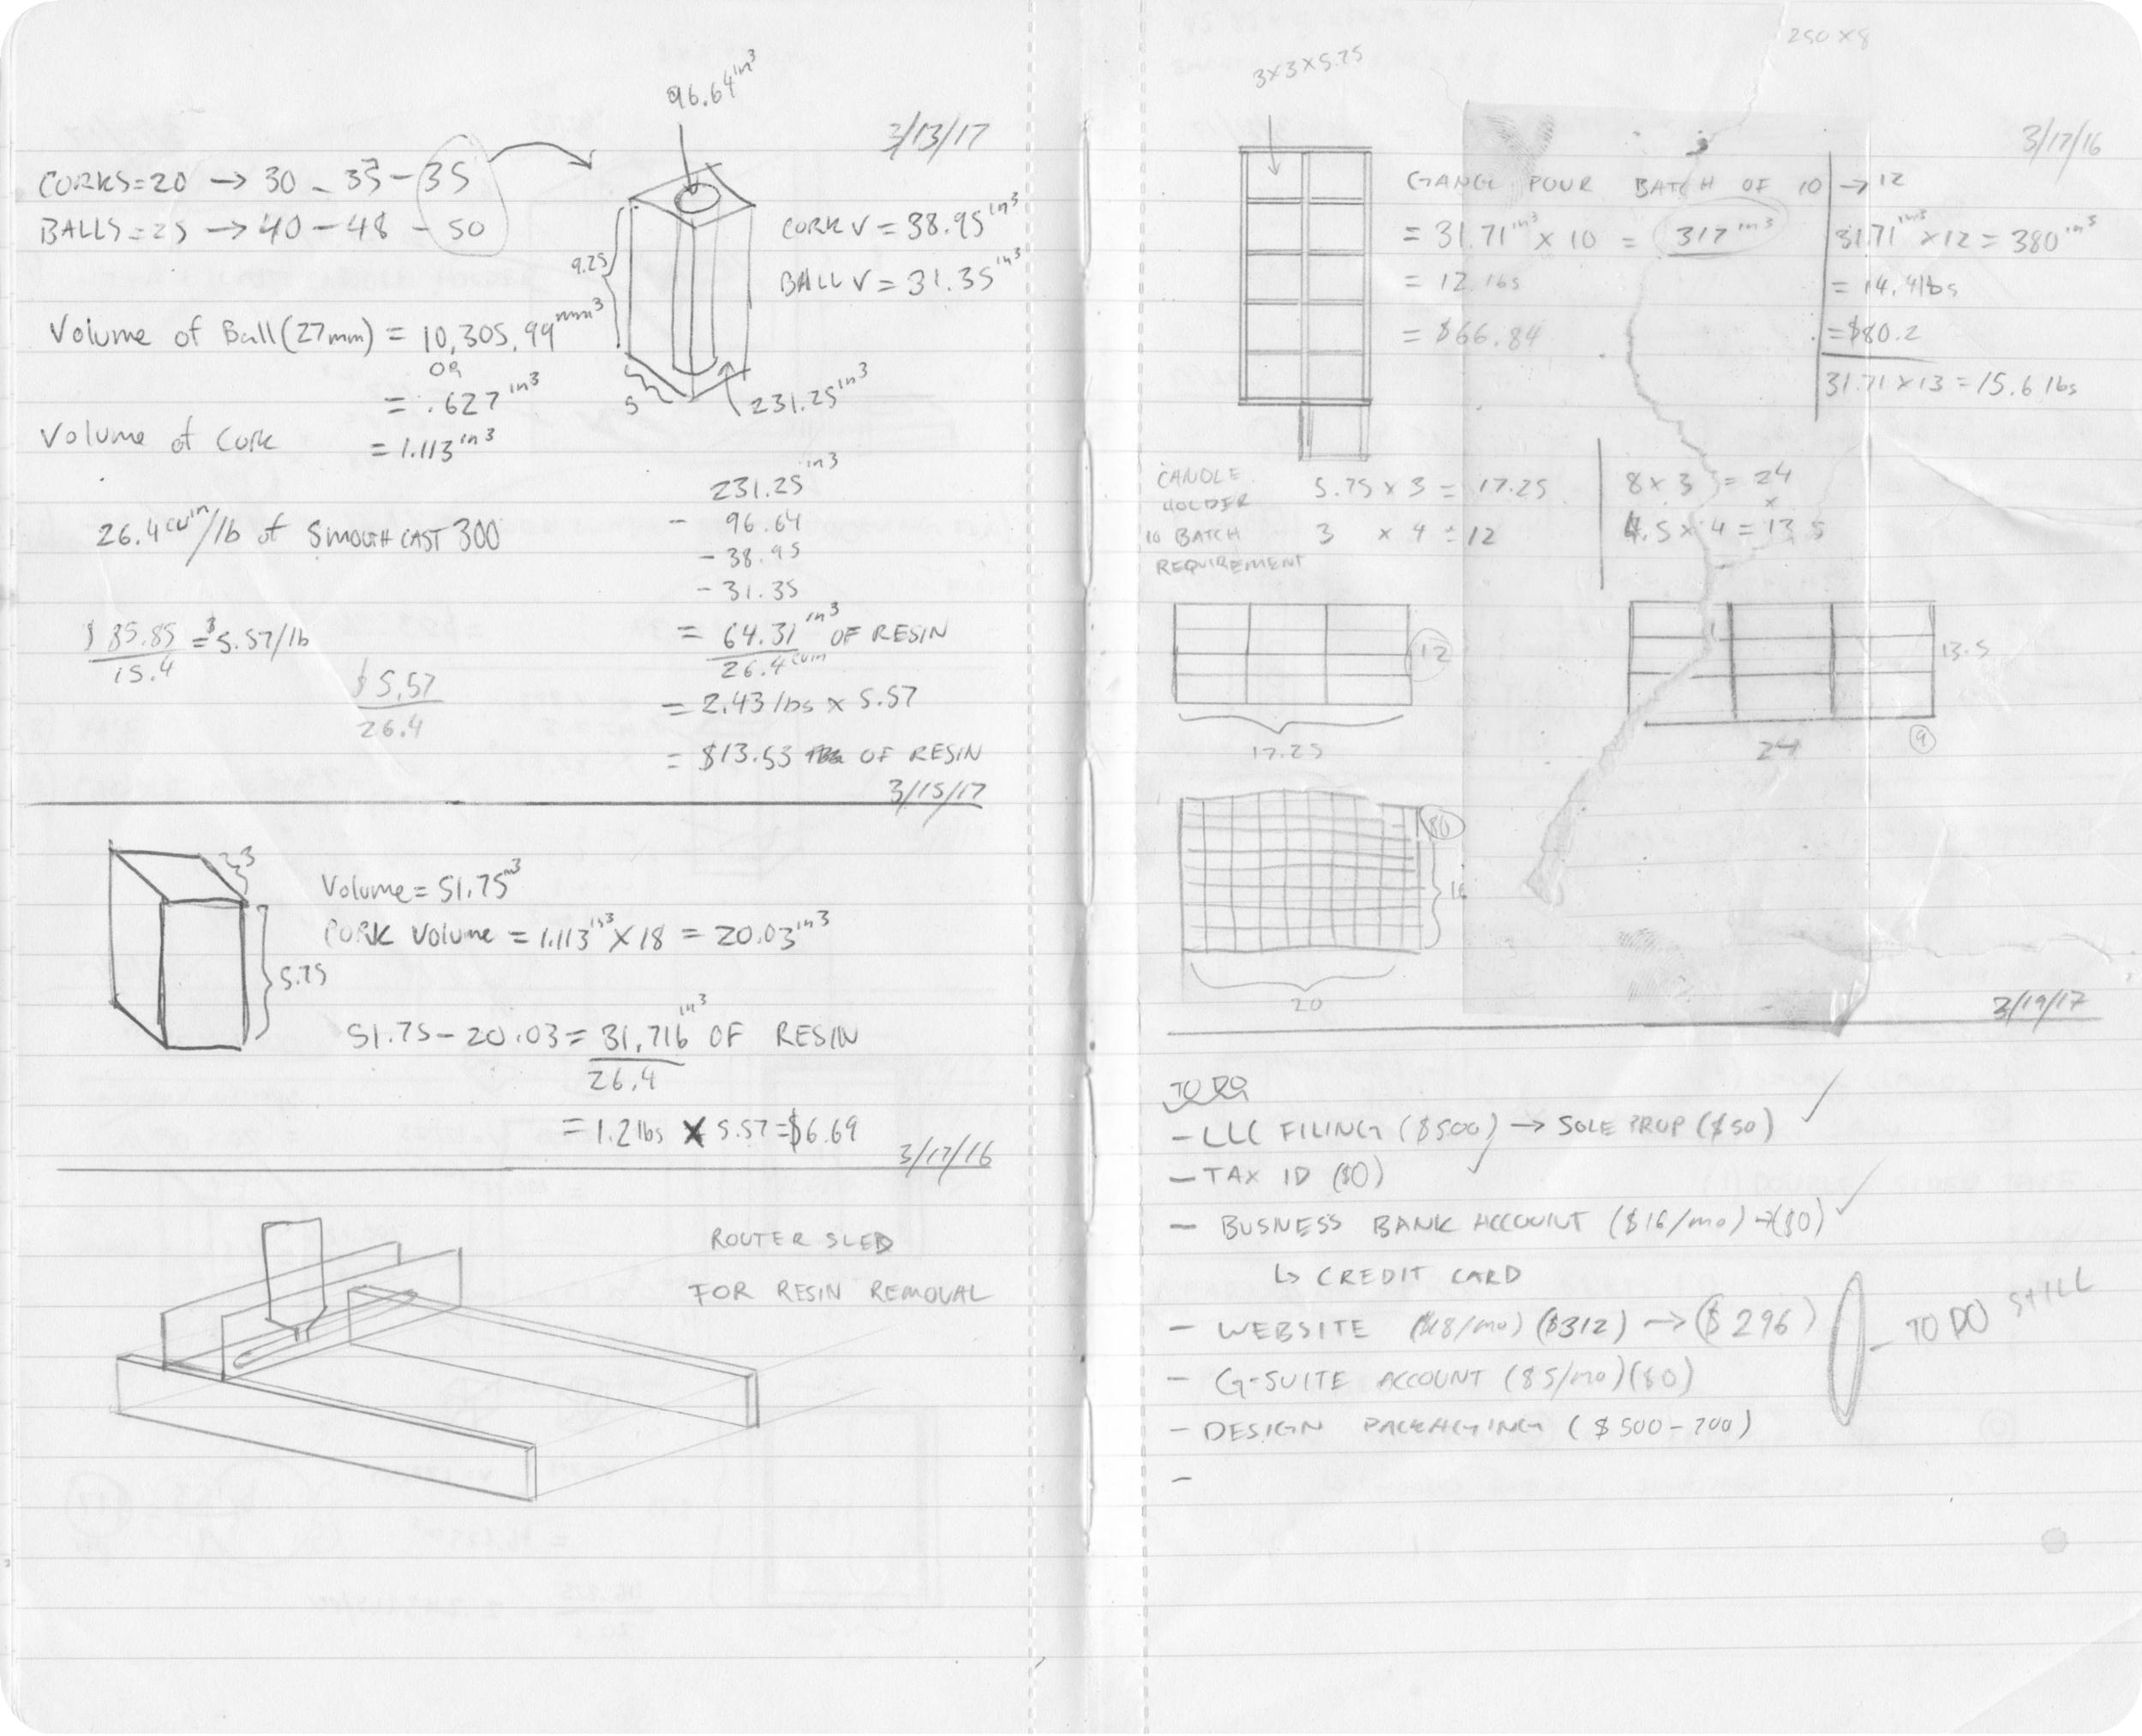 96.64 in³
3/13/17
CORKS=20 → 30 - 33 - 35
BALLS=25 → 40 - 48 - 50
CORK V = 38.95 in³
BALL V = 31.35 in³
9.25
Volume of Ball (27mm) = 10,305.99 mm³
OR
= .627 in³
5
231.25 in³
Volume of Cork = 1.113 in³
26.4 cu in/lb of SMOOTH CAST 300
231.25 in³
- 96.64
- 38.95
- 31.35
= 64.31 in³ OF RESIN
26.4 cu in
$85.85 = $5.57/lb
15.4
$5.57
26.4
= 2.43 lbs x 5.57
= $13.53 OF RESIN
3/15/17
3
5.75
Volume = 51.75 in³
CORK Volume = 1.113 in³ X 18 = 20.03 in³
51.75 - 20.03 = 31.716 in³ OF RESIN
26.4
= 1.2 lbs X 5.57 = $6.69
3/17/16
ROUTER SLED
FOR RESIN REMOVAL
250 x 8
3x3x5.75
3/17/16
GANG POUR BATCH OF 10 → 12
= 31.71 in³ x 10 = 317 in³
= 12 lbs
= $66.84
31.71 in³ x 12 = 380 in³
= 14.4 lbs
= $80.2
31.71 x 13 = 15.6 lbs
CANDLE
HOLDER
10 BATCH
REQUIREMENT
5.75 x 3 = 17.25
3 x 4 = 12
8 x 3 = 24
x
4.5 x 4 = 13.5
12
17.25
13.5
24
9
80
16
20
3/19/17
TO DO
- LLC FILING ($500) → SOLE PROP ($50) ✓
- TAX ID ($0) ✓
- BUSNESS BANK ACCOUNT ($16/mo) → ($0) ✓
↳ CREDIT CARD
- WEBSITE ($18/mo) ($312) → ($296)
- G-SUITE ACCOUNT ($5/mo) ($0)
- DESIGN PACKAGING ($500-700)
-
TO DO STILL